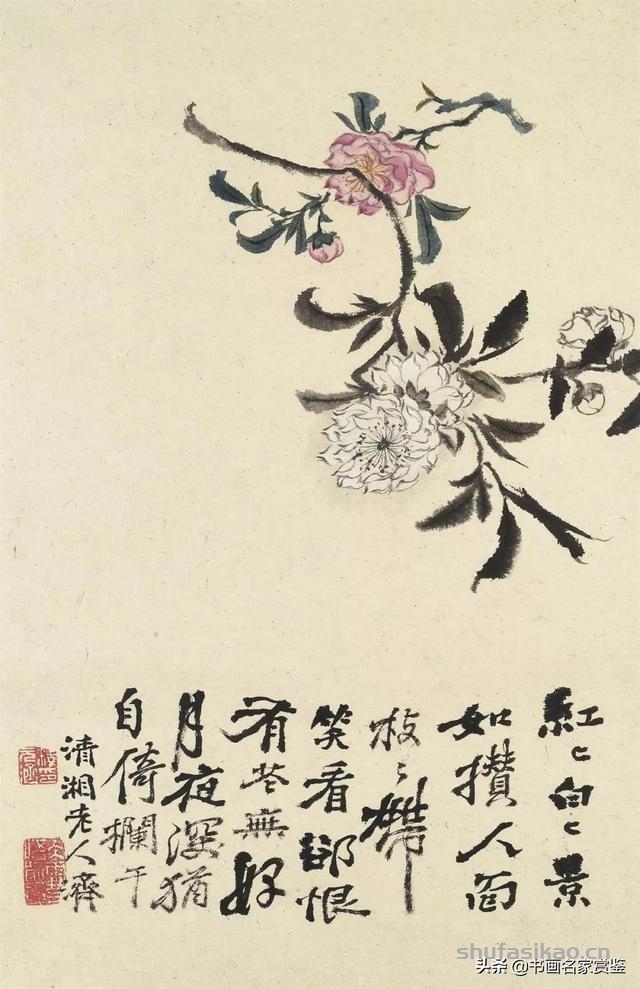 紅〻白〻景
如攢人面
枝〻帶
笑看卻恨
有花無好
月夜深猶
自倚欄干
清湘老人濟
shufasikao.cn
头条 @书画名家赏鉴